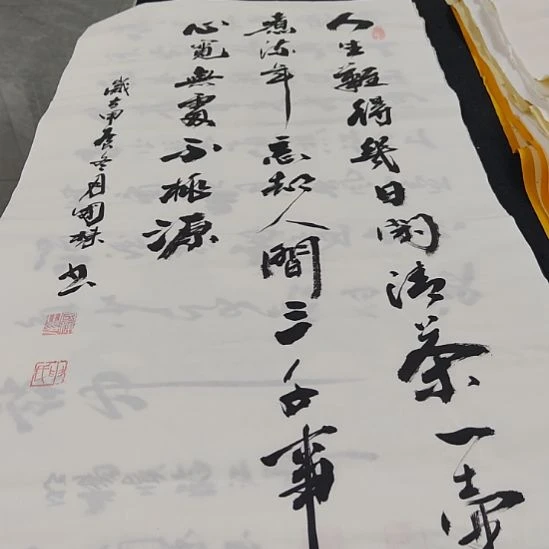 人生難得幾日閑清茶一壺
煮流年忘却人間三千事
心寬無處不桃源
歲在甲辰冬月國棟書